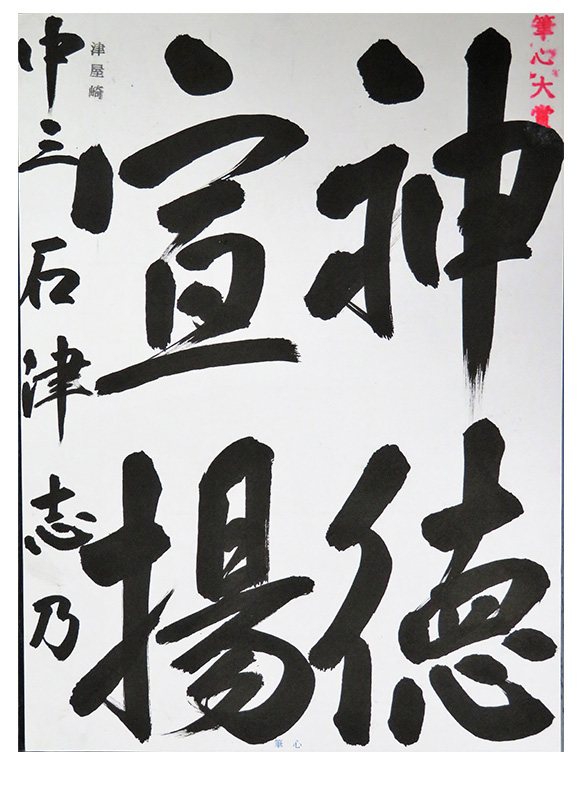 筆心大賞
神徳
宣揚
津屋崎
中三石津志乃
筆心